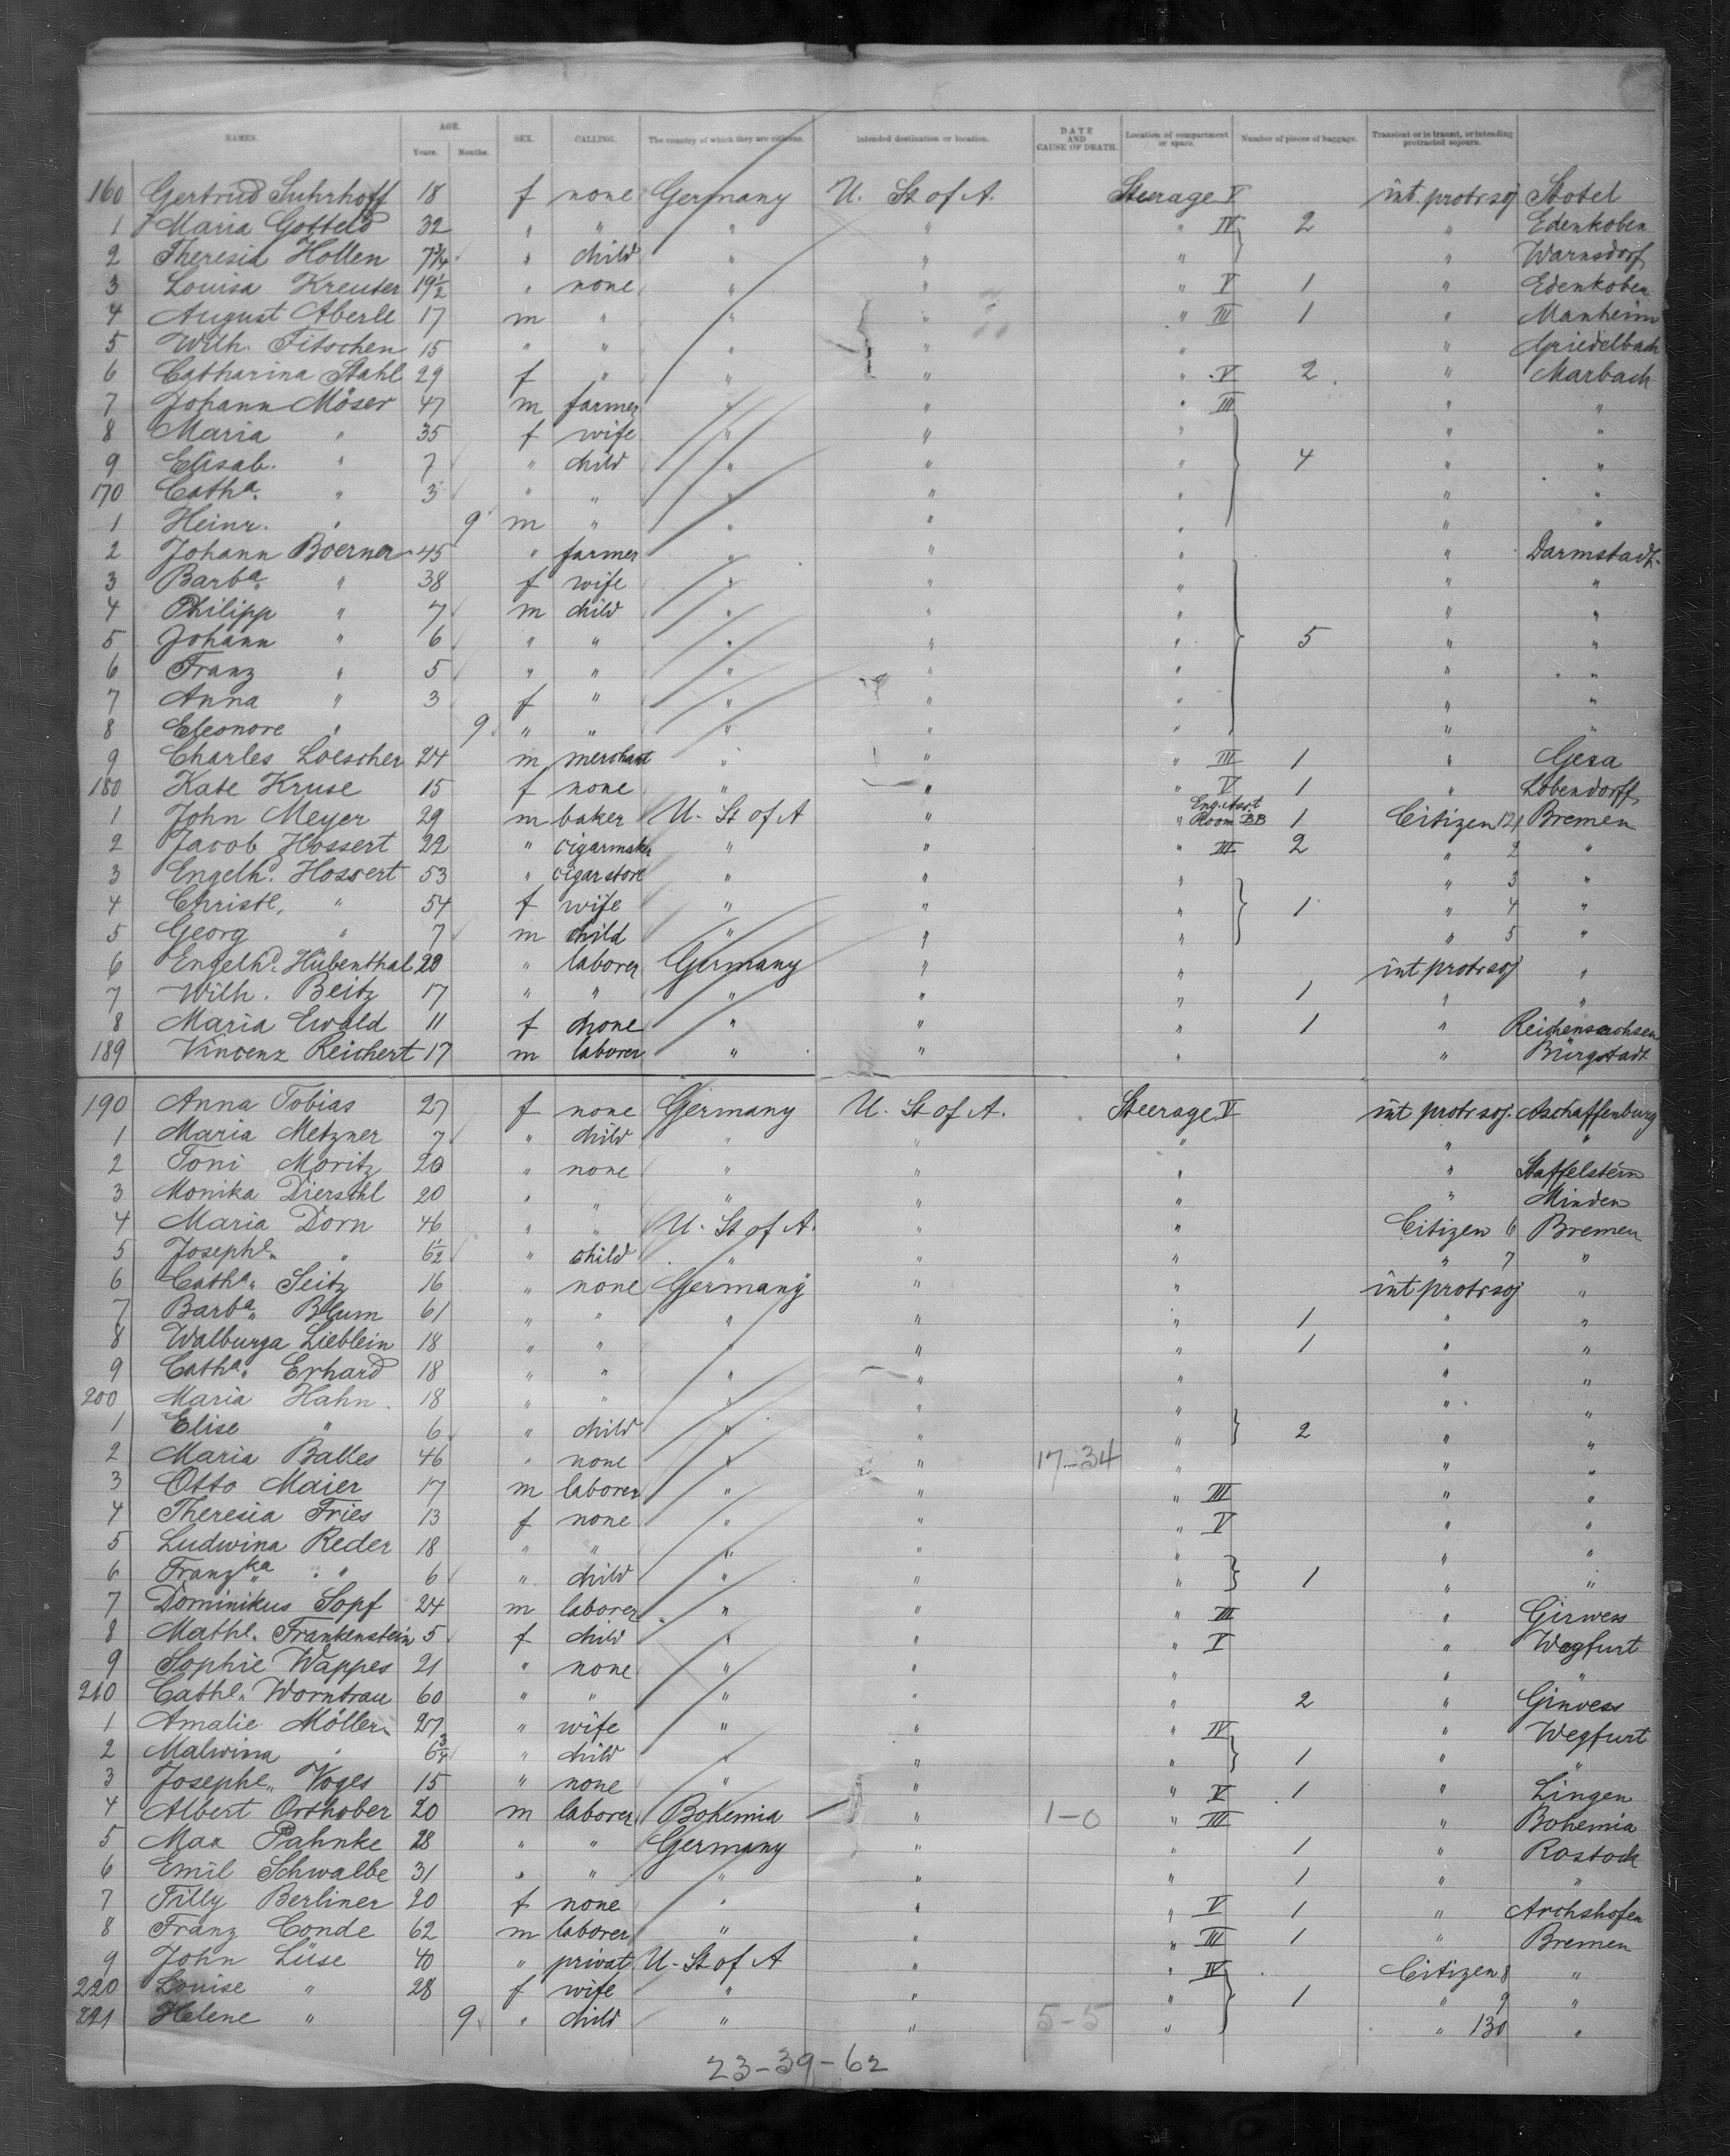 NAMES. AGE. Years. Months. SEX. CALLING. The country of which they are citizens. Intended destination or location. DATE AND CAUSE OF DEATH. Location of compartment or space. Number of pieces of baggage. Transient or in transit, or intending protracted sojourn.
160 Gertrud Suhrhoff 18 f none Germany U. St of A. Steerage V int. protr soj Stotel
1 Maria Gotteld 32 " " " " " IV 2 " Edenkoben
2 Theresia Hollen 7¾ " child " " " " Warnsdorf
3 Louisa Kreuter 19½ " none " " " V 1 " Edenkoben
4 August Aberle 17 m " " " " III 1 " Manheim
5 Wilh. Fitschen 15 " " " " " " Griedelbach
6 Catharina Stahl 29 f " " " " V 2 " Marbach
7 Johann Möser 47 m farmer " " " III " "
8 Maria " 35 f wife " " " " "
9 Elisab. " 7 " child " " " 4 " "
170 Catha. " 3 " " " " " " "
1 Heinr. " 9 m " " " " " "
2 Johann Boerner 45 " farmer " " " " Darmstadt
3 Barba. " 38 f wife " " " " "
4 Philipp " 7 m child " " " " "
5 Johann " 6 " " " " " 5 " "
6 Franz " 5 " " " " " " "
7 Anna " 3 f " " " " " "
8 Eleonore " 9 " " " " " " "
9 Charles Loescher 24 m merchant " " " III 1 " Gera
180 Kate Kruse 15 f none " " " V 1 " Lobendorff
1 John Meyer 29 m baker U. St of A " " Eng. Asst Room BB 1 Citizen 121 Bremen
2 Jacob Hossert 22 " cigarmaker " " " III 2 " 2 "
3 Engelhd. Hossert 53 " cigarstore " " " " 3 "
4 Christe. " 54 f wife " " " 1 " 4 "
5 Georg " 7 m child " " " " 5 "
6 Engelhd. Hübenthal 20 " laborer Germany " " int protr soj "
7 Wilh. Beitz 17 " " " " " 1 " "
8 Maria Ewald 11 f none " " " 1 " Reichensachsen
189 Vincenz Reichert 17 m laborer " " " " Bürgstadt
190 Anna Tobias 27 f none Germany U. St of A. Steerage V int protr soj. Aschaffenburg
1 Maria Metzner 7 " child " " " " "
2 Toni Moritz 20 " none " " " " Staffelstein
3 Monika Dierschl 20 " " " " " " Minden
4 Maria Dorn 46 " " U. St of A. " " Citizen 6 Bremen
5 Josephe. " 6½ " child " " " " 7 "
6 Catha. Seitz 16 " none Germany " " int protr soj "
7 Barba. Blum 61 " " " " " 1 " "
8 Walburga Lieblein 18 " " " " " 1 " "
9 Catha. Erhard 18 " " " " " " "
200 Maria Hahn 18 " " " " " " "
1 Elise " 6 " child " " " 2 " "
2 Maria Balles 46 " none " " 17-34 " " "
3 Otto Maier 17 m laborer " " " III " "
4 Theresia Fries 13 f none " " " V " "
5 Ludwina Reder 18 " " " " " " "
6 Franzka " 6 " child " " " 1 " "
7 Dominikus Sopf 24 m laborer " " " III " Girwess
8 Mathe. Frankenstein 5 f child " " " V " Wegfurt
9 Sophie Wappes 21 " none " " " " "
210 Cathe. Worntrau 60 " " " " " 2 " Ginvess
1 Amalie Möller 27 " wife " " " IV " Wegfurt
2 Malwina " 6¾ " child " " " 1 " "
3 Josephe. Voges 15 " none " " " V 1 " Lingen
4 Albert Orthober 20 m laborer Bohemia " 1-0 " III " Bohemia
5 Max Pahnke 28 " " Germany " " 1 " Rostock
6 Emil Schwalbe 31 " " " " " 1 " "
7 Tilly Berliner 20 f none " " " V 1 " Archshofen
8 Franz Conde 62 m laborer " " " III 1 " Bremen
9 John Lüse 40 " privat U. St of A " " IV Citizen 8 "
220 Louise " 28 f wife " " " 1 " 9 "
221 Helene " 9 " child " " 5-5 " " 130 "
23-39-62